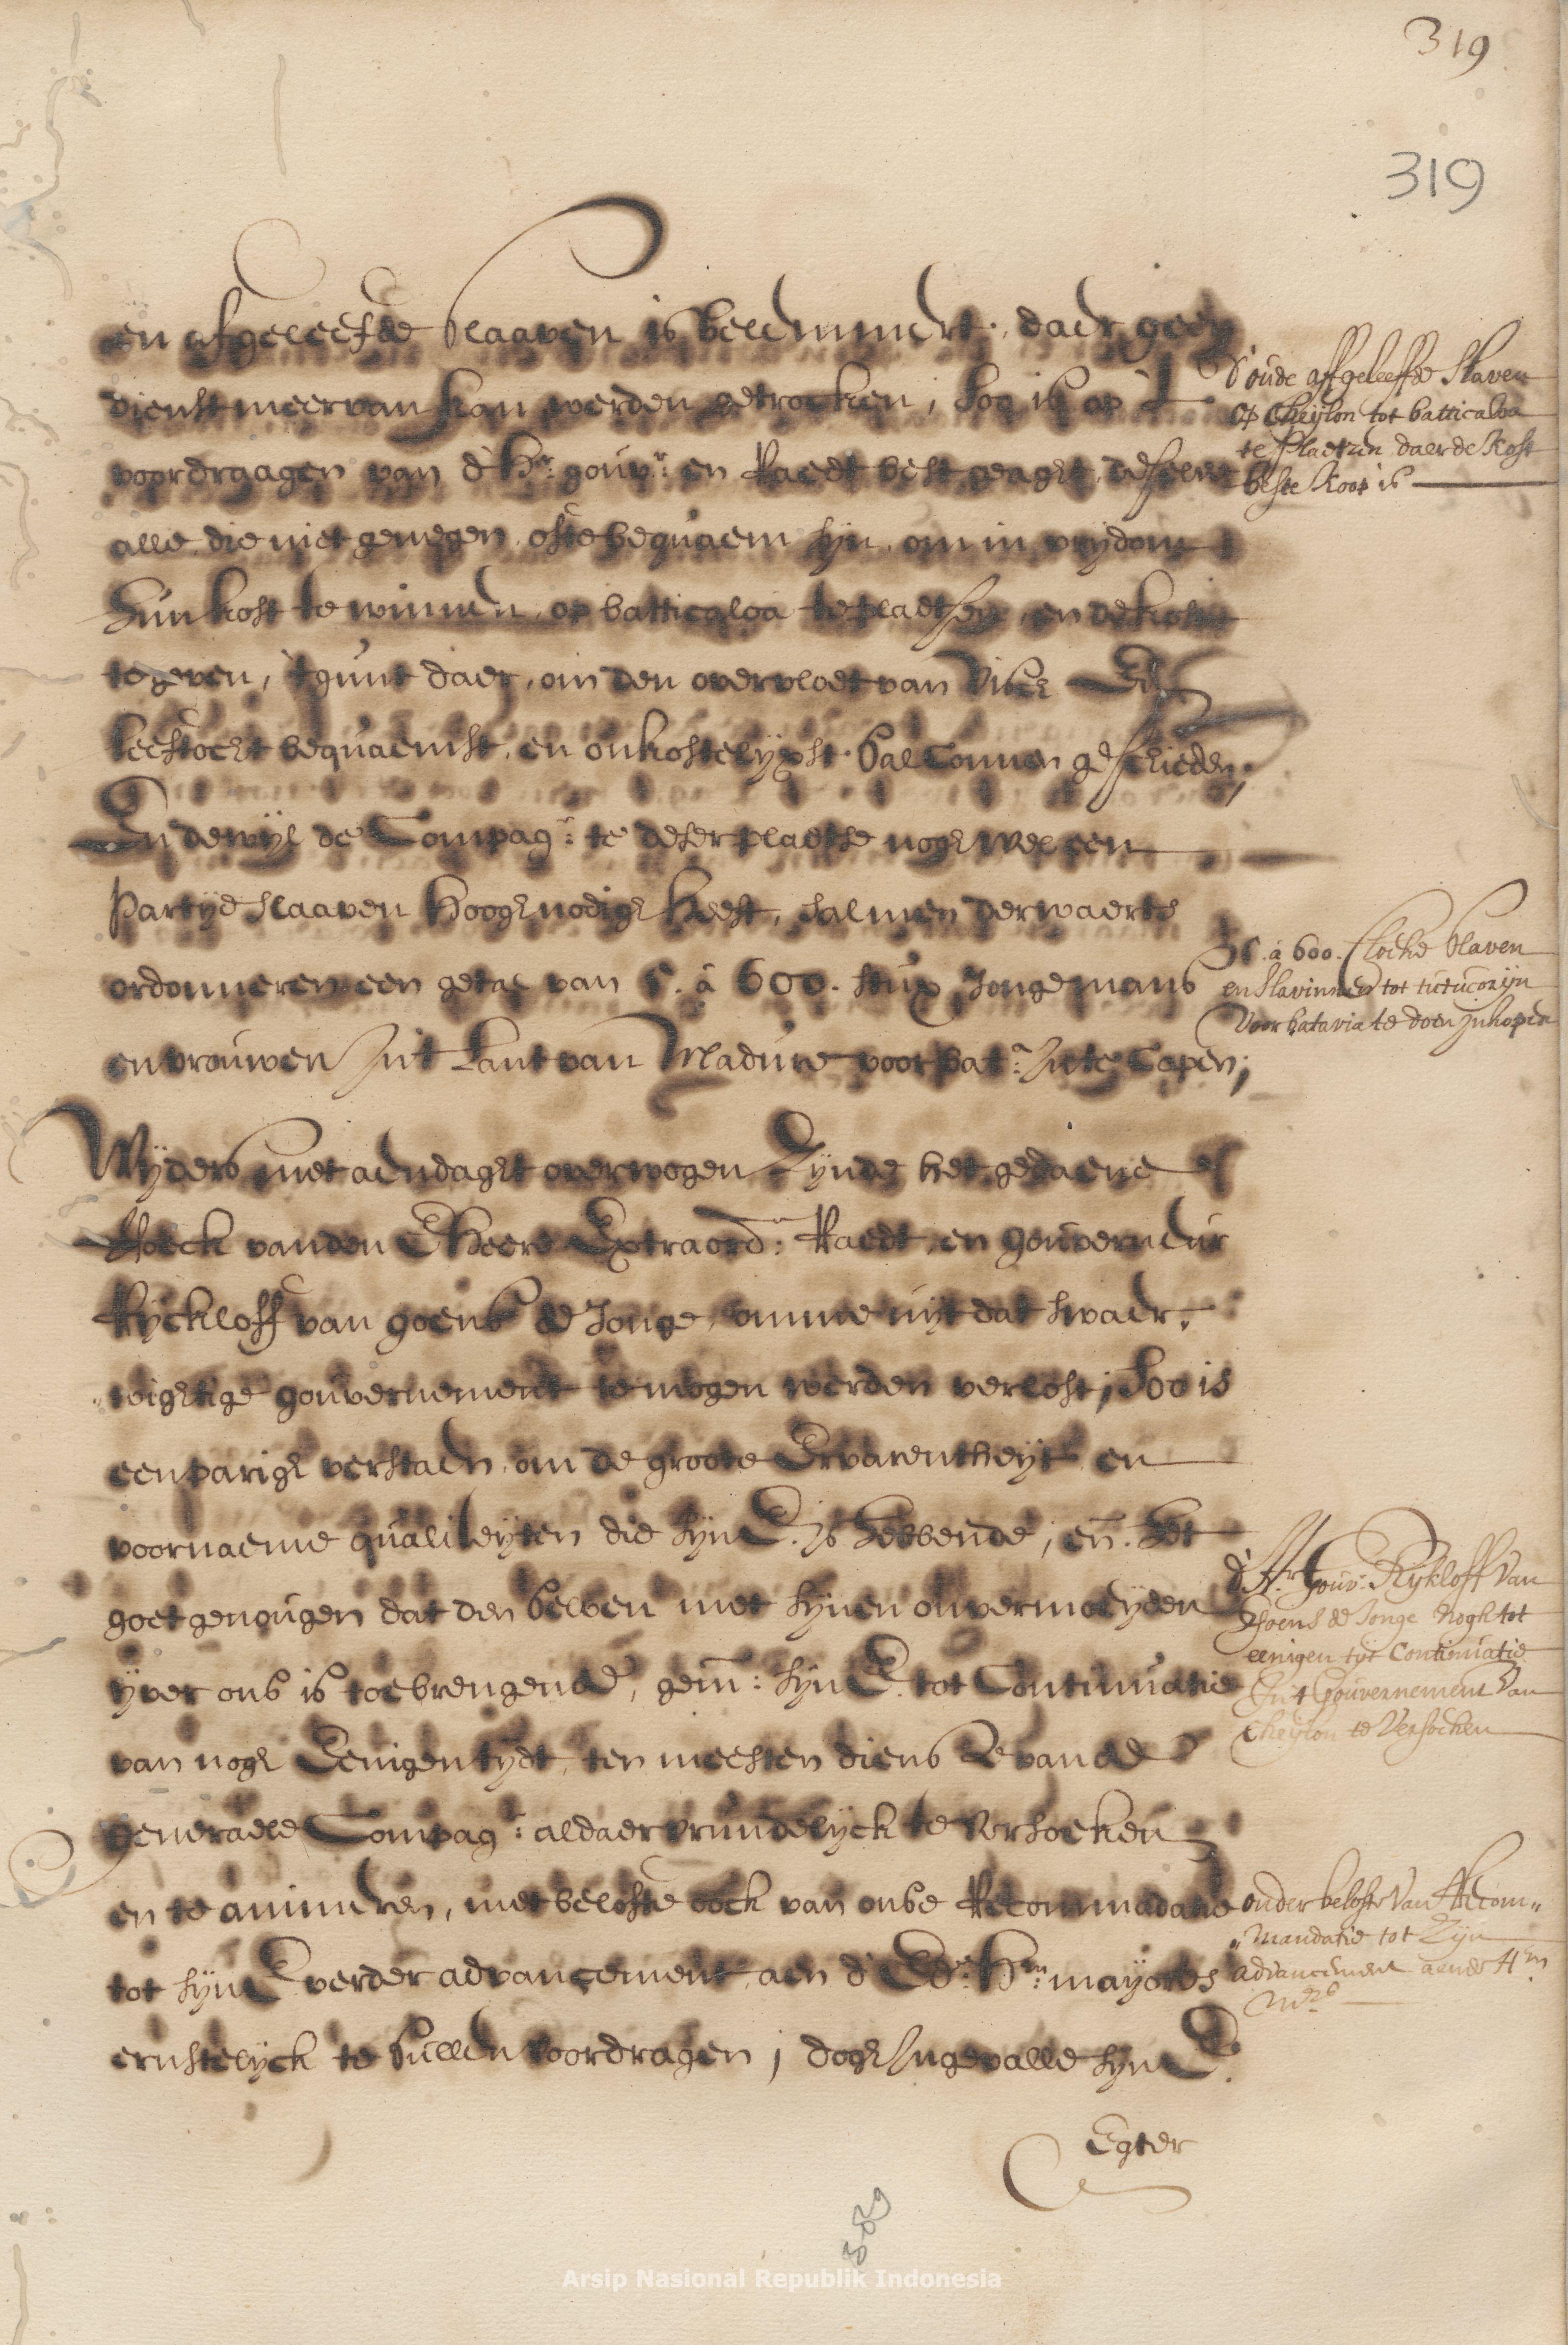 319
319
en afgeleefde slaaven is belemmert, daer geen
dienst meer van kan werden getrocken, soo is op 't
voordraagen van d' Hr: gouvr: en Raedt best geagt, deselve
alle die niet genegen ofte bequaem sijn, om in vrydom
hun kost te winnen, op batticaloa te plaetsen, en de kost
te geven, 't gunt daer, om den overvloet van Visch en
leeftocht bequaemst, en onkostelyxst sal connen geschieden,
En dewyl de Compag: te deser plaetse nogh wel een
Partye slaaven hoogh nodigh heeft, sal men derwaerts
ordonneren een getal van 5. à 600. stux Jongemans
en vrouwen in 't Lant van Madure voor bata: in te Copen;
Wyders met aendaght overwogen zynde het gedaene
versoeck van den E Heere Extraord: Raedt, en gouverneur
Ryckloff van goens de Jonge, omme uyt dat swaer,
wigtige gouvernement te mogen werden verlost; Soo is
eenparigh verstaen, om de groote Ervarentheyt en
voornaeme qualiteyten die syn E. is hebbende, en het
goet genougen dat den selven met synen onvermoeyden
yver ons is toebrengende, gem: syn E. tot Continuatie
van nogh Eenigen tydt, ten meesten dienste van de
generaele Compag: aldaer vrundelyck te versoeken
en te animeren, met belofte oock van onse Recommadatie
tot syn E verder advancement aen d' Ede: Hrn: mayores
ernstelyck te sullen voordragen; dogh Ingevalle syn E.
Egter
D' oude affgeleeffde Slaven
op Cheylon tot batticaloa
te Plaetzen daer de kost
beste koop is
5. à 600. Slaven
en Slavinnen tot tutucoryn
Voor batavia te doen Inkopen
d' Hr Gouvr: Rykloff Van
Goens de Jonge nogh tot
eenigen tyt Continuatie
In 't Gouvernement Van
Cheylon te Versoeken
onder belofte Van Recom„
„mandatie tot Zyn
advancement aen de Hrn
Mrs
389
Arsip Nasional Republik Indonesia